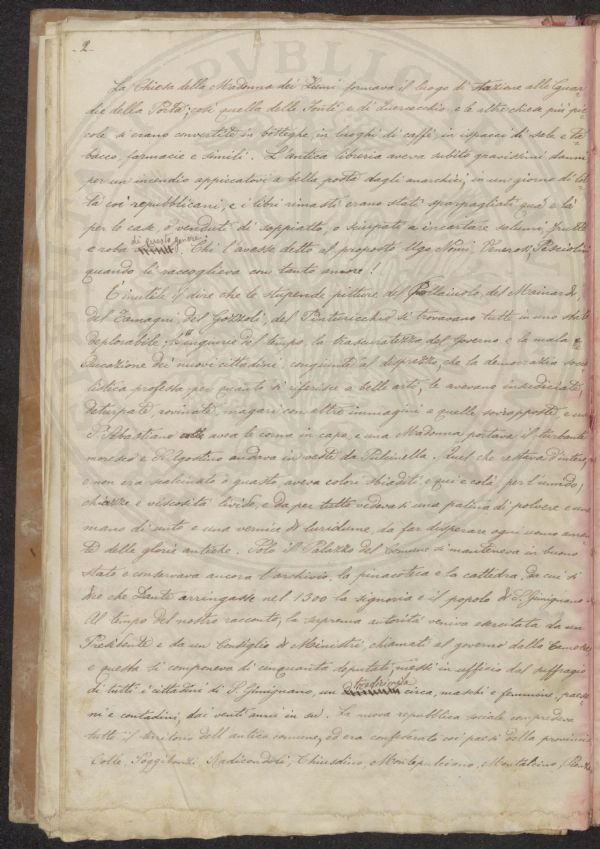 2
La Chiesa della Madonna dei Lumi formava il luogo di stazione alle Guar-
die della Porta; così quella delle Fonti e di Querceechio, e le altre chiese più pic-
cole si erano convertite in botteghe, in luoghi di caffè, in ispacci di sale e ta-
bacco, farmacie e simili. L'antica libreria aveva subito gravissimi danni
per un incendio appiccatovi a bella posta dagli anarchici, in un giorno di lot-
ta coi repubblicani, e i libri rimasti erano stati sparpagliati quà e là
per le case, o venduti di soppiatto, o sciupati a incartare salumi, frutte
e roba di questo genere. Chi l'avesse detto al proposto Ugo Nomi, Venerosi, Pesciolini
quando li raccoglieva con tanto amore!
È inutile il dire che le stupende pitture del Pollaiuolo, del Mainardi,
del Tamagni, del Gozzoli, del Pinturicchio si trovavano tutte in uno stato
deplorabile; le ingiurie del tempo, la trascuratezza del Governo e la mala e-
ducazione dei nuovi cittadini, congiunte al disprezzo, che la democrazia socia-
listica professa per quanto si riferisce a belle arti, le avevano insudiciate,
deturpate, rovinate, magari con altre immagini a quelle sovrapposte e un
S. Sebastiano avea le corna in capo, e una Madonna portava il turbante
moresco e S. Agostino andava in veste da Pulcinella. Quel che restava d'intero,
e non era scalcinato o guasto, aveva colori sbiaditi e qui e colà per l'umido,
chiazze e viscosità livide, e da per tutto vedevasi una patina di polvere e una
mano di unto e una vernice di luridume, da far disperare ogni uomo aman-
te delle glorie antiche. Solo il Palazzo del Comune si manteneva in buono
stato e conservava ancora l'archivio, la pinacoteca e la cattedra, da cui si
dice che Dante arringasse nel 1300 la signoria e il popolo di S. Gimignano.
Al tempo del nostro racconto, la suprema autorità veniva esercitata da un
Presidente e da un Consiglio di Ministri, chiamati al governo dalla Camera,
e questa si componeva di cinquanta deputati, messi in ufficio dal suffragio
di tutti i cittadini di S. Gimignano, un tredicimila circa, maschi e femmine, paesa-
ni e contadini, dai venti anni in su. La nuova repubblica sociale comprendeva
tutto il territorio dell'antico comune, ed era confederata coi paesi della provincia
Colle, Poggibonsi, Radicondoli, Chiusdino, Montepulciano, Montalcino,